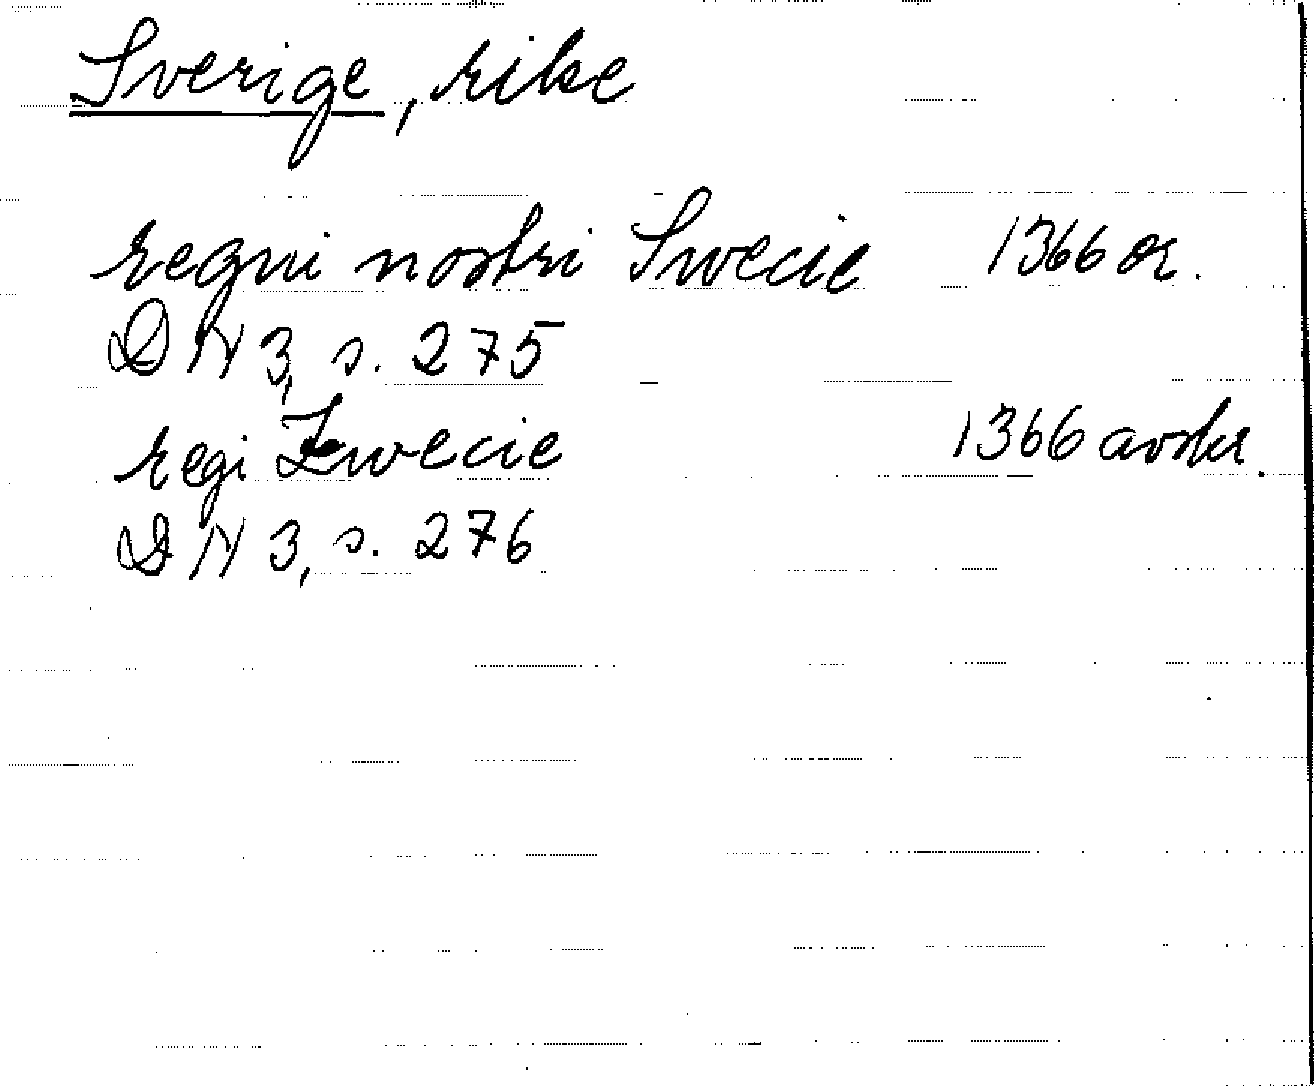 Sverige, rike
regni nostri Swecie 1366 or.
DN 3, s. 275
regi Zwecie 1366 avskr.
DN 3, s. 276